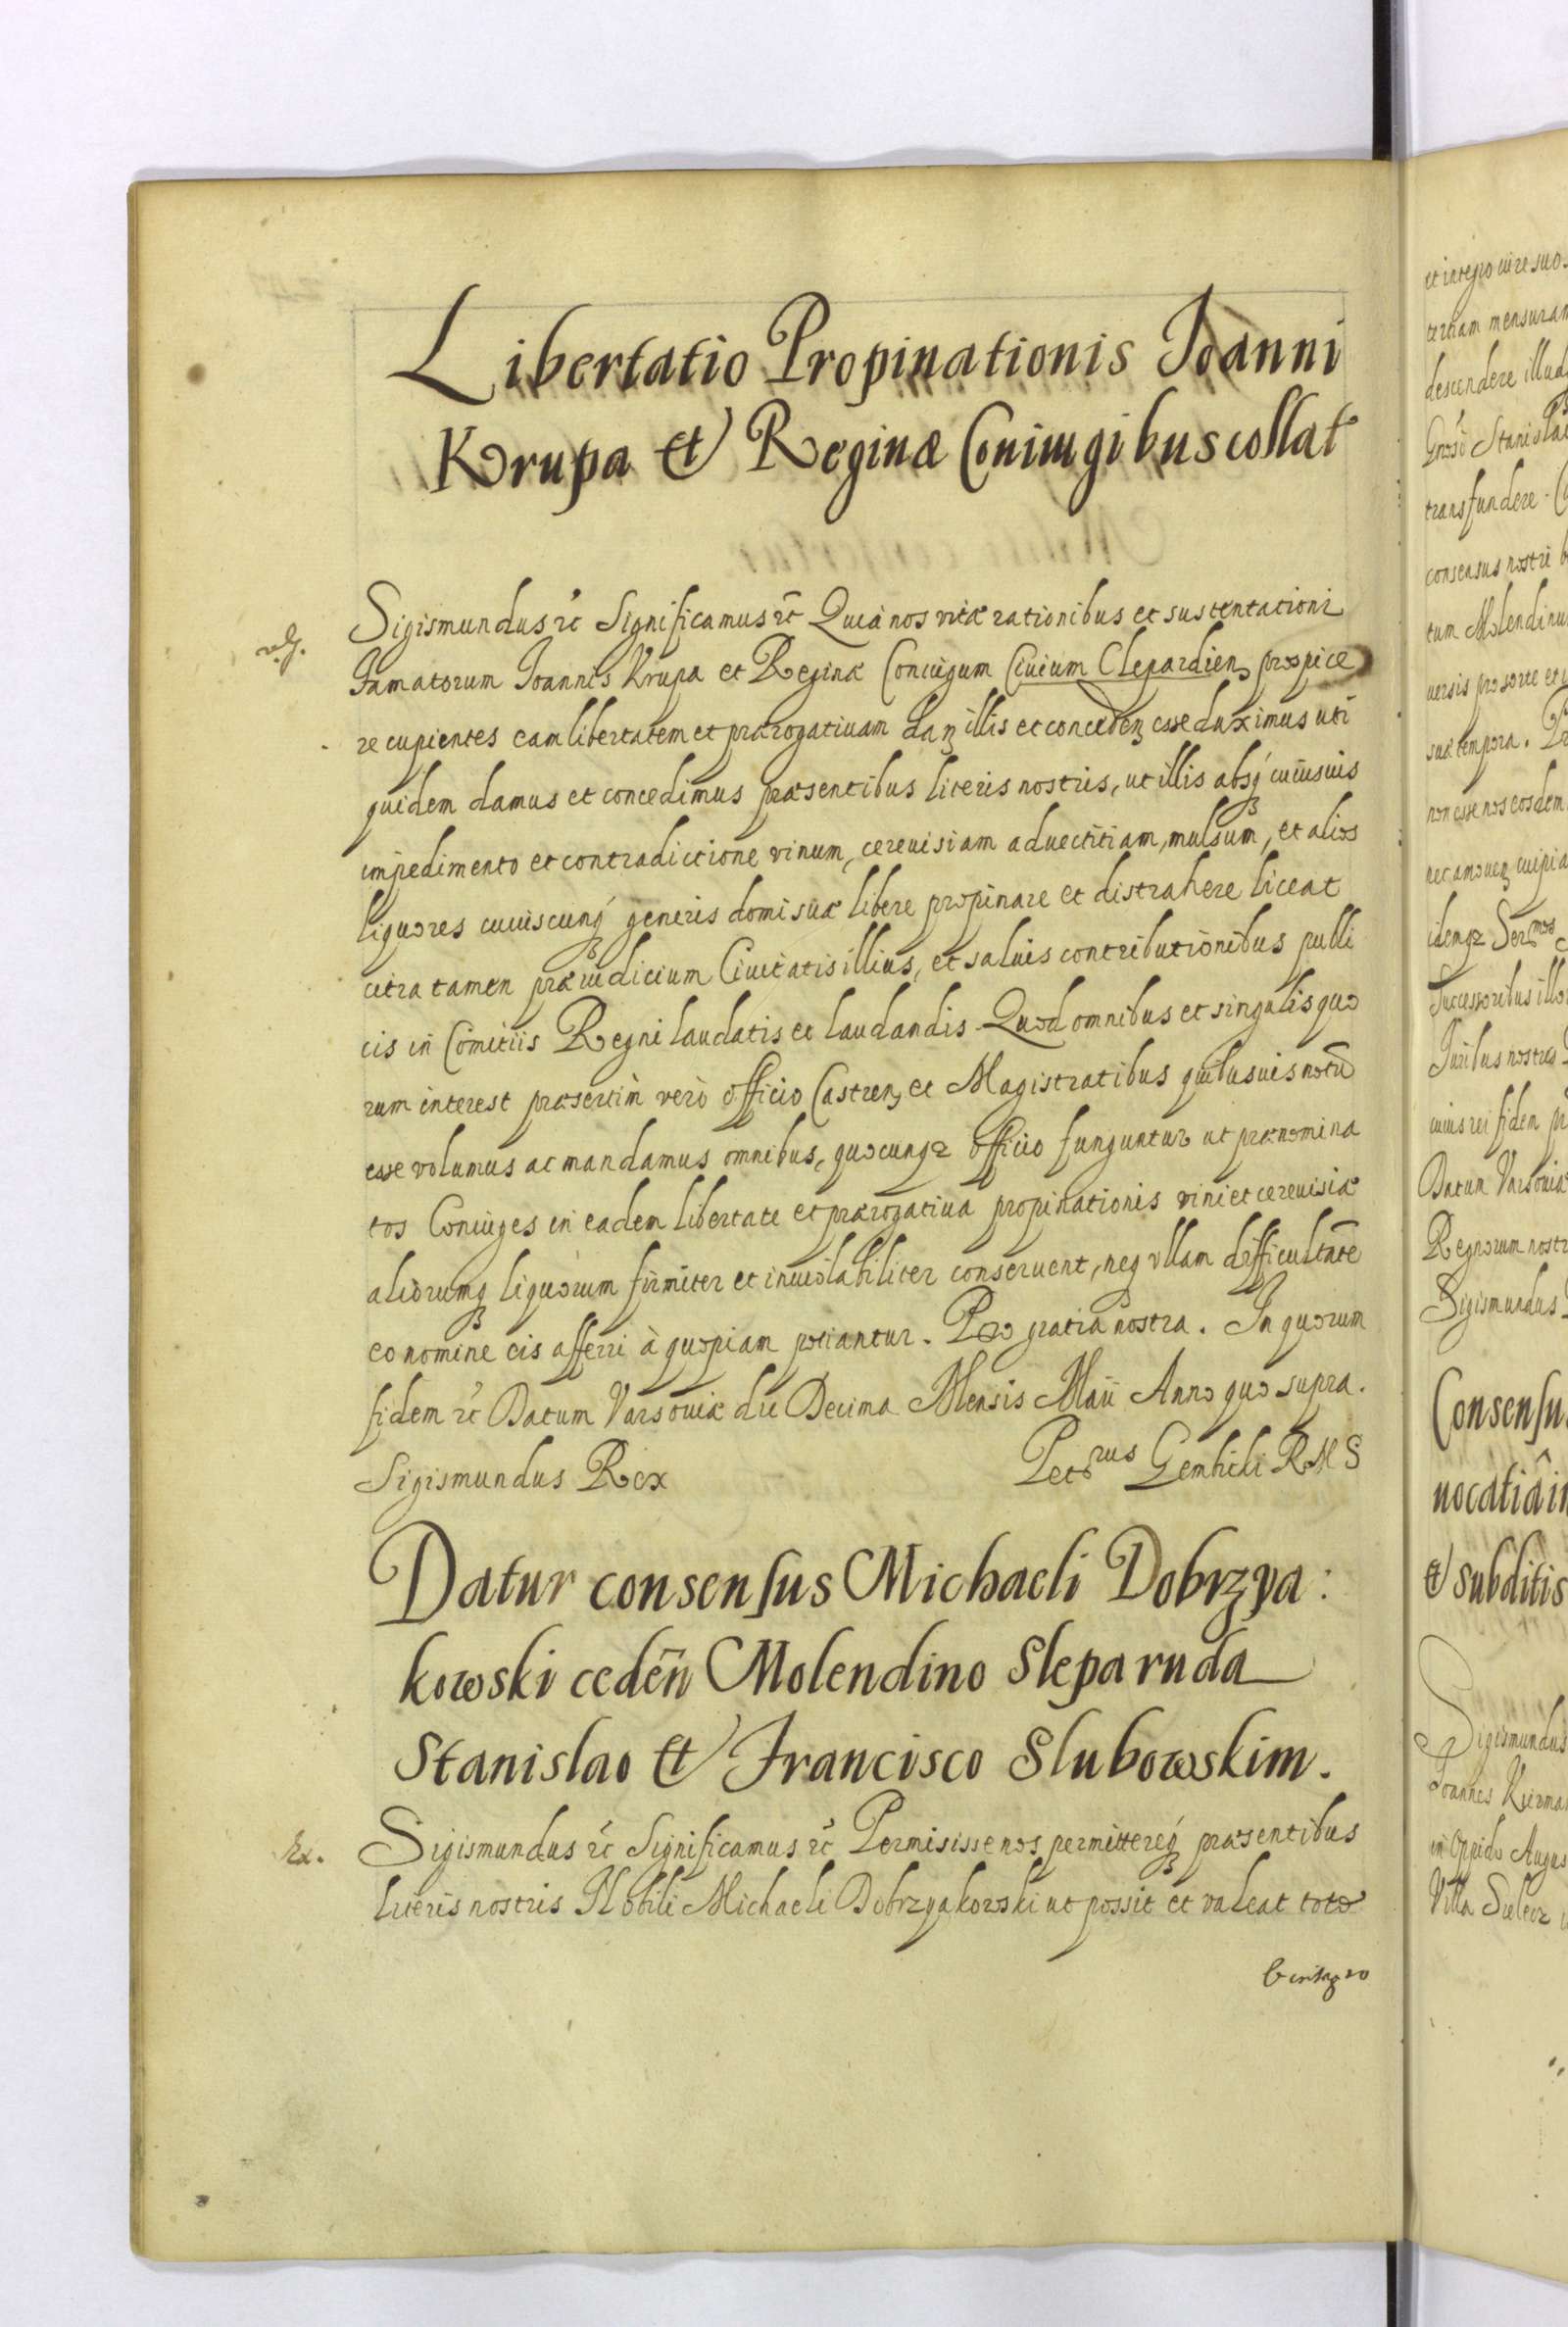 Libertatio Propinationis Ioanni
Krupa et Reginæ Coniugibus collat
Sigismundus etc Significamus etc Quia nos vitæ rationibus et sustentationi
Famatorum Ioannis Krupa et Reginæ Coniugum Ciuium Clepardien prospice
re cupientes eam libertatem et prærogatiuam dan illis et conceden esse duximus uti
quidem damus et concedimus præsentibus literis nostris, ut illis absq cuiusuis
impedimento et contradictione vinum, cereuisiam aduectitiam, mulsum, et alios
liquores cuiuscunq generis domi suæ libere propinare et distrahere liceat
citra tamen præiudicium Ciuitatis illius, et saluis contributionibus pulli
cis in Comitiis Regni laudatis et laudandis. Quod omnibus et singulis quo
rum interest præsertim verò officio Castren, et Magistratibus quibusuis notũ
esse volumus ac mandamus omnibus, quocunqz officio funguntur ut prænomina
tos Coniuges in eadem libertate et prærogatiua propinationis vini et cereuisiæ
aliorumq liquorum firmiter et inuiolabiliter conseruent, neq vllam difficultatẽ
eo nomine eis afferri à quopiam patiantur. Pro gratia nostra. In quorum
fidem etc Datum Varsouiæ die Decima Mensis Maii Anno quo supra.
Sigismundus Rex Petrus Gembicki R M S
Datur consensus Michaeli Dobrzya:
kowski cedeñ Molendino Slepa ruda
Stanislao et Francisco Slubowskim.
Rx. Sigismundus etc Significamus etc Permisisse nos permittereq præsentibus
literis nostris Nobili Michaeli Dobrzyakowski ut possit et valeat toto
et integro iure suo
tertiam mensuram
descendere illud
Stanisla
transfundere
consensus nostri
tum Molendinu
uersis pro sorte et
sua tempora.
non esse nos eosdem
nec amouen cuipia
idemqz Sermos
Successoribus illo
Iuribus nostris
cuius rei fidem
Datum Varsouiæ
Regnorum nostr
Sigismundus
Consensu
uocatiâ in
et subditis
Sigismundus
Ioannes
in oppido Augus
Villa